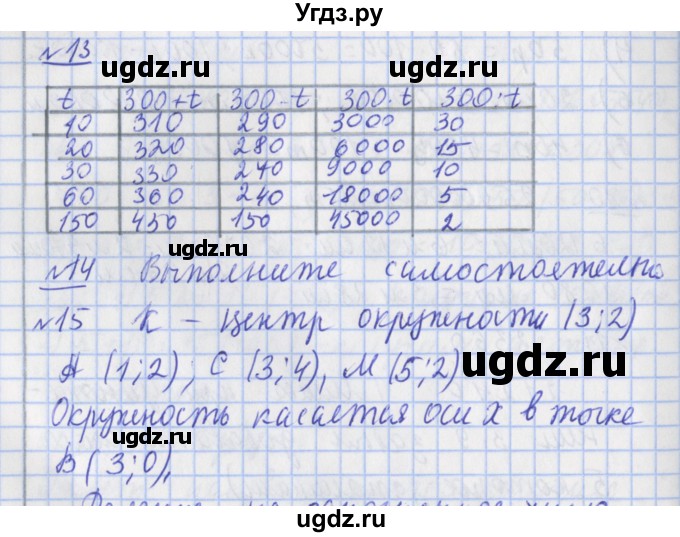 Угдз.ру
№13
ugdz.ru ugdz.ru
t 300+t 300-t 300·t 300:t
10 310 290 3000 30
20 320 280 6000 15
30 330 240 9000 10
60 360 240 18000 5
150 450 150 45000 2
ugdz.ru ugdz.ru
№14 Выполните самостоятельно
№15 K – центр окружности (3;2)
A (1;2), C (3;4), M (5;2)
ugdz.ru
Окружность касается оси x в точке
B (3;0),
ugdz.ru ugdz.ru
ugdz.ru